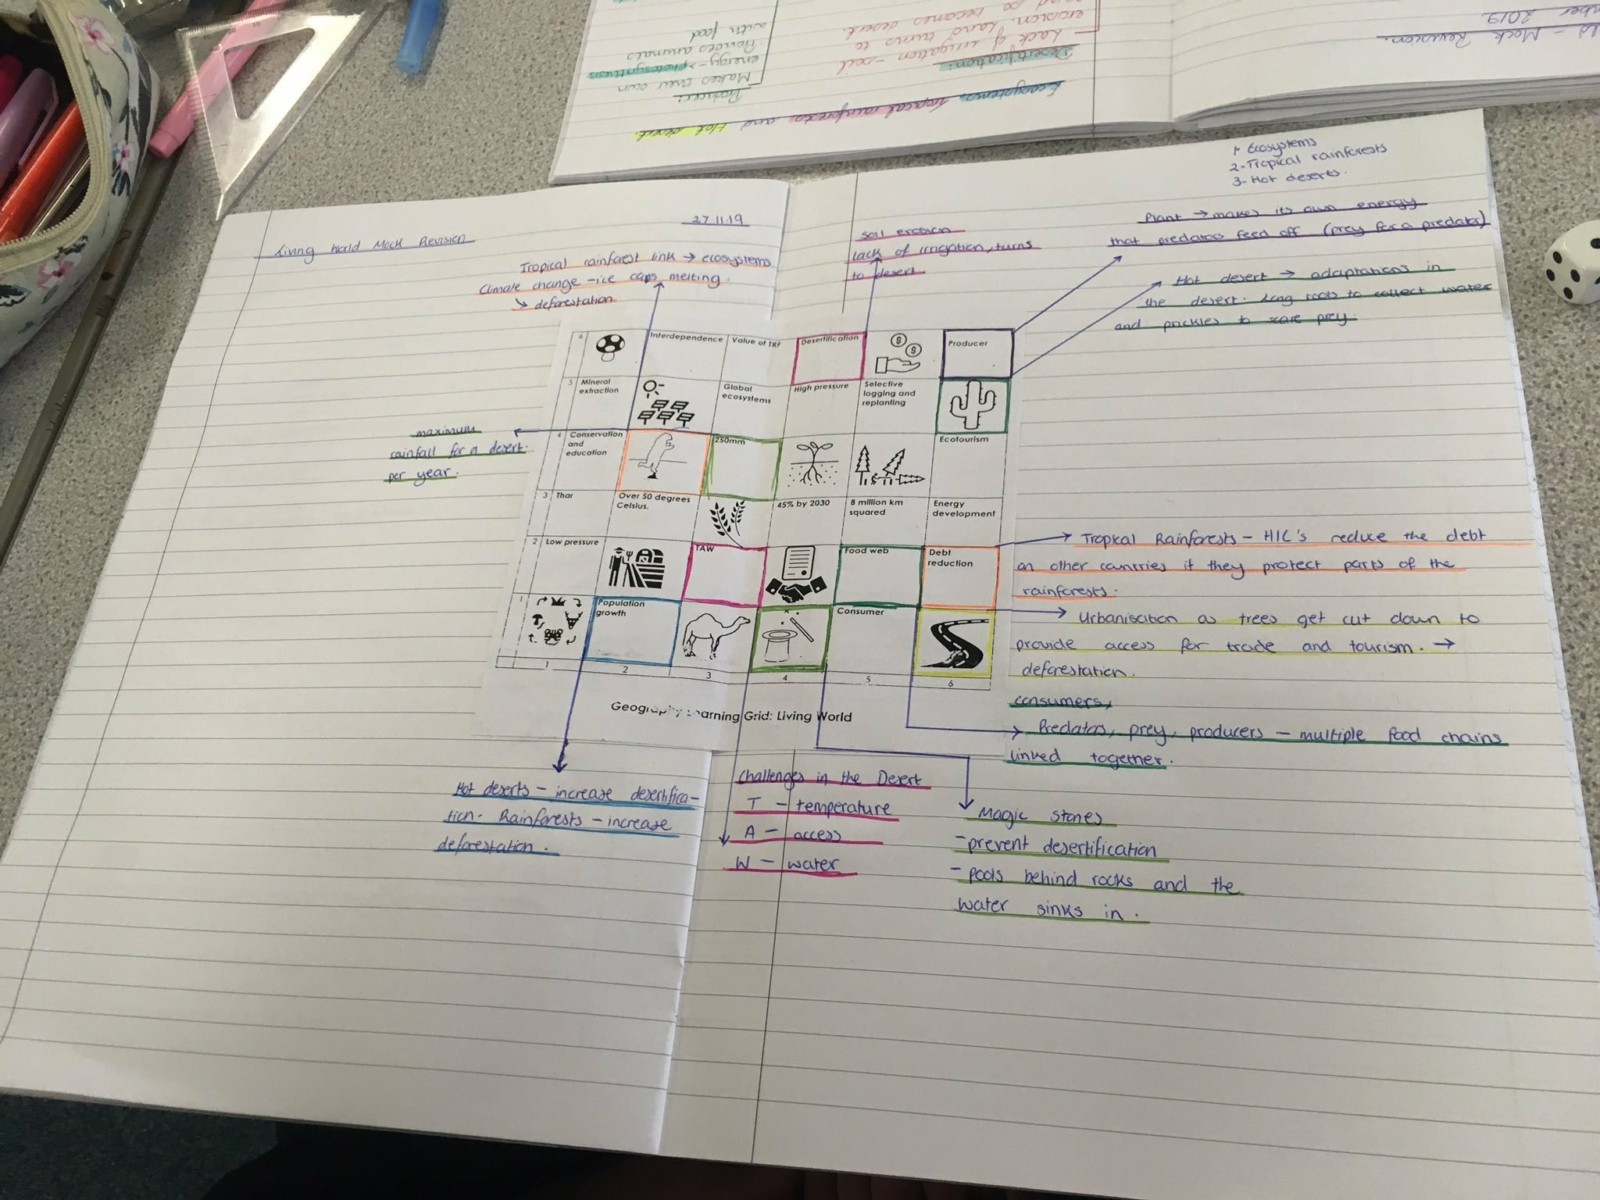 Producer:
Makes their own
energy → photosynthesis
Provides animals
with food
Desertification:
- Lack of irrigation - soil
erosion. Land turns to
becomes desert.
Ecosystems, Tropical rainforests and Hot desert.
- Mock Revision.
2019
1- Ecosystems
2-Tropical rainforests
3- Hot deserts.
27.11.19
Living World Mock Revision
Tropical rainfast link → ecosystems
Climate change - ice caps melting.
↳ deforestation.
soil erosion
lack of irrigation, turns
to desert
Plant → makes its own energy
that predators feed off (prey for a predator)
Hot desert → adaptations in
the desert. Long roots to collect water
and prickles to scare prey
maximum
rainfall for a desert
per year.
6
Interdependence
Value of TRF
Desertification
Producer
5
Mineral
extraction
Global
ecosystems
High pressure
Selective
logging and
replanting
4
Conservation
and
education
250mm
Ecotourism
3
Thar
Over 50 degrees
Celsius.
45% by 2030
8 million km
squared
Energy
development
2
Low pressure
TAW
Food web
Debt
reduction
1
Population
growth
Consumer
1 2 3 4 5 6
Geography Learning Grid: Living World
Tropical Rainforests - HIC's reduce the debt
on other countries if they protect parts of the
rainforests.
Urbanisation as trees get cut down to
provide access for trade and tourism. →
deforestation.
consumers,
Predators, prey, producers - multiple food chains
linked together.
Hot deserts - increase desertifica-
tion. Rainforests - increase
deforestation.
Challenges in the Desert
T - temperature
A - access
W - water
Magic stones
- prevent desertification
- pools behind rocks and the
water sinks in.